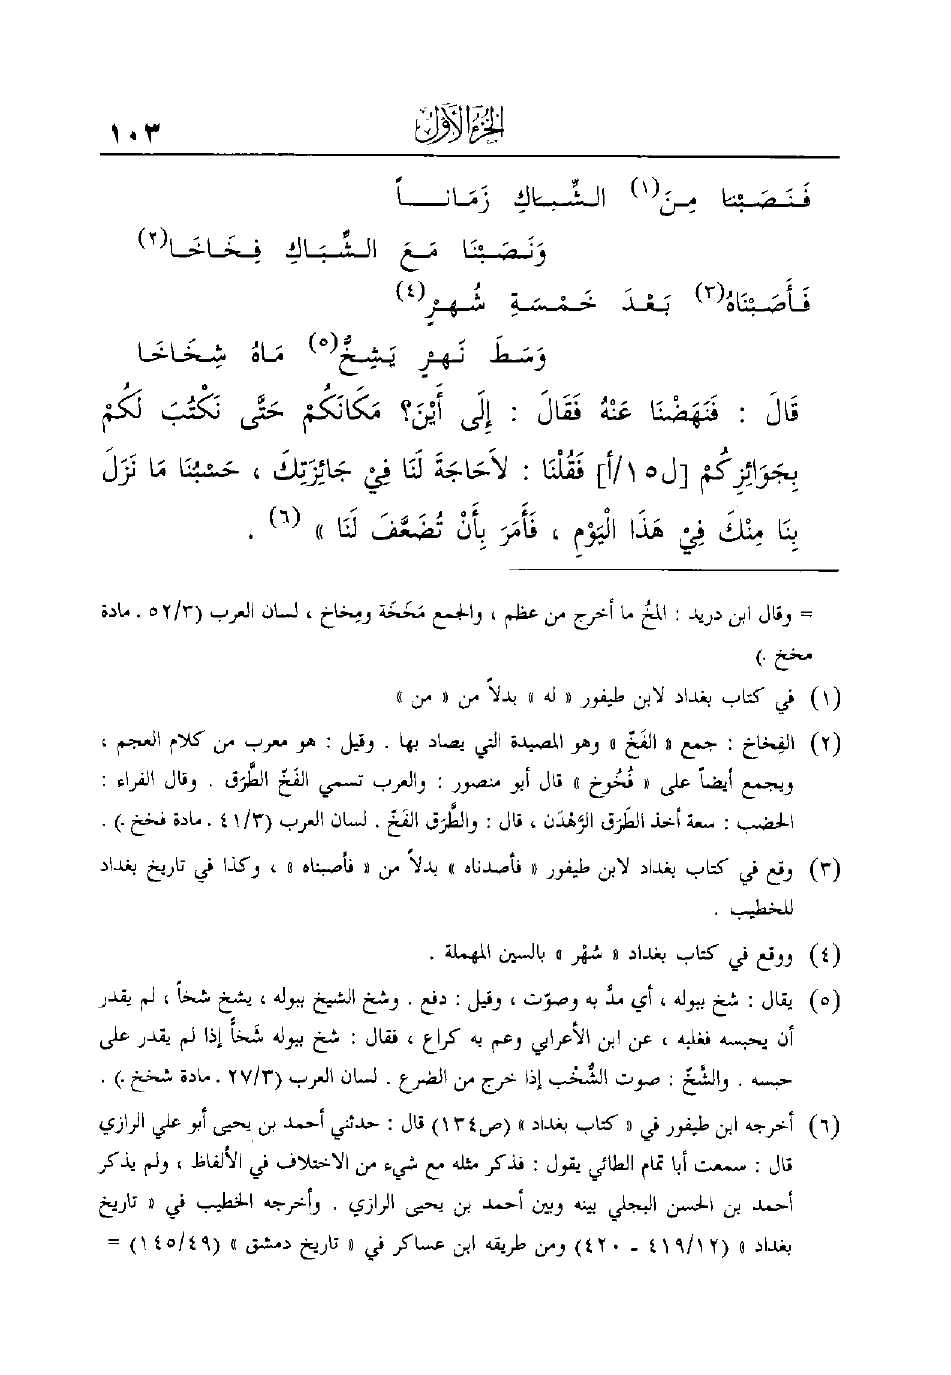 الجزء الأول ١٠٣
فَنَصَبْنا مِنَ(١) الشِّباكِ زَمَاناً
وَنَصَبْنَا مَعَ الشِّبَاكِ فِخَاخَا(٢)
فَأَصَبْنَاهُ(٣) بَعْدَ خَمْسَةِ شُهرٍ(٤)
وَسَطَ نَهرٍ يَشِخُّ(٥) مَاهُ شِخَاخَا
قَالَ : فَنَهَضْنَا عَنْهُ فَقَالَ : إِلَى أَيْنَ؟ مَكَانَكُمْ حَتَّى نَكْتُبَ لَكُمْ
بِجَوَائِزِكُمْ [ل١٥/أ] فَقُلْنَا : لاَحَاجَةَ لَنَا فِيْ جَائِزَتِكَ ، حَسْبُنَا مَا نَزَلَ
بِنَا مِنْكَ فِيْ هَذَا الْيَوْمِ ، فَأَمَرَ بِأَنْ تُضَعَّفَ لَنَا » (٦) .
= وقال ابن دريد : المخُ ما أخرج من عظم ، والجمع مَخَخَة ومِخاخ ، لسان العرب (٥٢/٣ . مادة
مخخ .)
(١) في كتاب بغداد لابن طيفور « له » بدلاً من « من »
(٢) الفِخاخ : جمع « الفَخّ » وهو المصيدة التي يصاد بها . وقيل : هو معرب من كلام العجم ،
ويجمع أيضاً على « فُخُوخ » قال أبو منصور : والعرب تسمي الفَخّ الطَّرَق . وقال الفراء :
الخضب : سعة أخذ الطَرَق الرَّهْدَن ، قال : والطَّرَق الفَخّ . لسان العرب (٤١/٣ . مادة فخخ .) .
(٣) وقع في كتاب بغداد لابن طيفور « فأصدناه » بدلاً من « فأصبناه » ، وكذا في تاريخ بغداد
للخطيب .
(٤) ووقع في كتاب بغداد « شهْر » بالسين المهملة .
(٥) يقال : شخ ببوله ، أي مدَّ به وصوّت ، وقيل : دفع . وشخ الشيخ ببوله ، يشخ شخاً ، لم يقدر
أن يحبسه فغلبه ، عن ابن الأعرابي وعم به كراع ، فقال : شخ ببوله شَخاًّ إذا لم يقدر على
حبسه . والشَّخّ : صوت الشُّخْب إذا خرج من الضرع . لسان العرب (٢٧/٣ . مادة شخخ .) .
(٦) أخرجه ابن طيفور في « كتاب بغداد » (ص١٣٤) قال : حدثني أحمد بن يحيى أبو علي الرازي
قال : سمعت أبا تمام الطائي يقول : فذكر مثله مع شيء من الاختلاف في الألفاظ ، ولم يذكر
أحمد بن الحسن البجلي بينه وبين أحمد بن يحيى الرازي . وأخرجه الخطيب في « تاريخ
بغداد » (٤١٩/١٢ - ٤٢٠) ومن طريقه ابن عساكر في « تاريخ دمشق » (١٤٥/٤٩) =